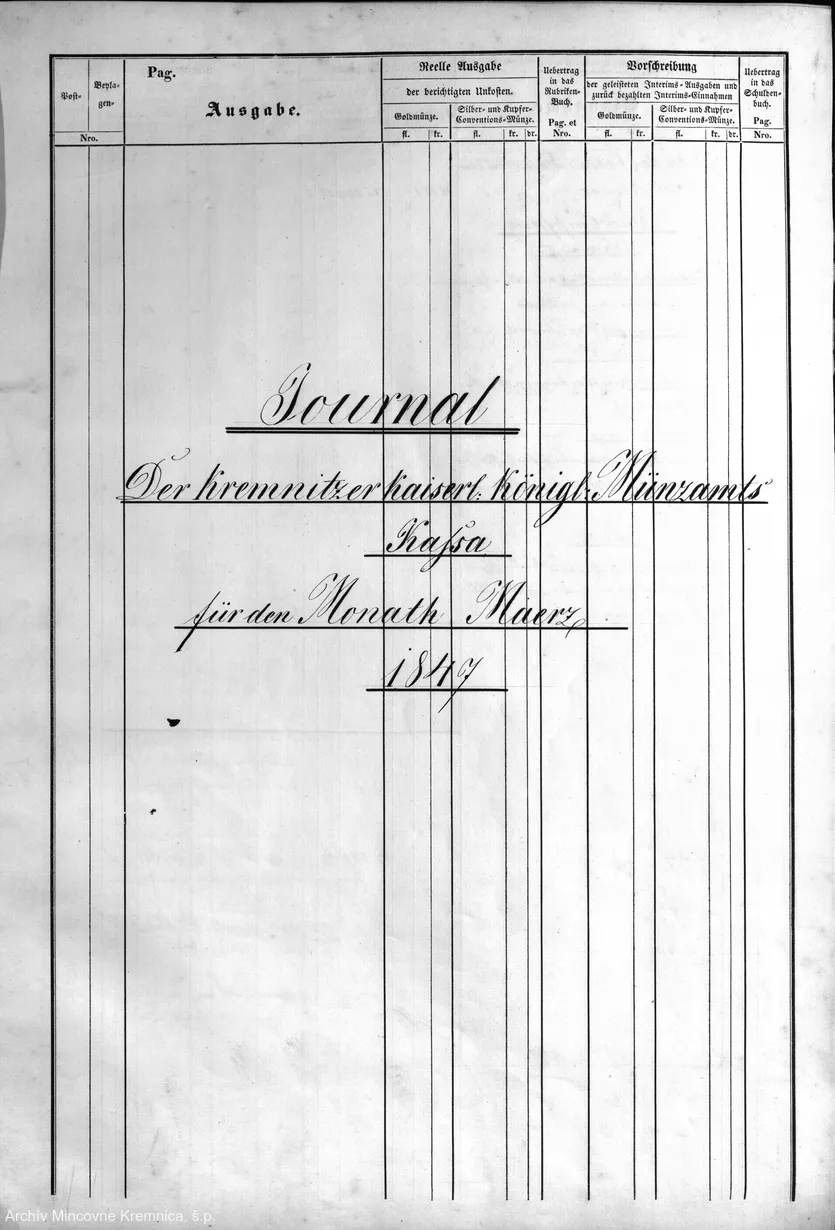 Post-
Beyla-
gen-
Nro.
Pag.
Ausgabe.
Reelle Ausgabe
der berichtigten Unkosten.
Goldmünze.
Silber- und Kupfer-
Conventions-Münze.
fl. kr. fl. kr. dr.
Uebertrag
in das
Rubriken-
Buch.
Pag. et
Nro.
Vorschreibung
der geleisteten Interims-Ausgaben und
zurück bezahlten Interims-Einnahmen
Goldmünze.
Silber- und Kupfer-
Conventions-Münze.
fl. kr. fl. kr. dr.
Uebertrag
in das
Schulden-
buch.
Pag.
Nro.
Journal
Der Kremnitzer kaiserl: Königl: Münzamts
Kaſsa
für den Monath Maerz
1847
Archív Mincovne Kremnica, š.p.